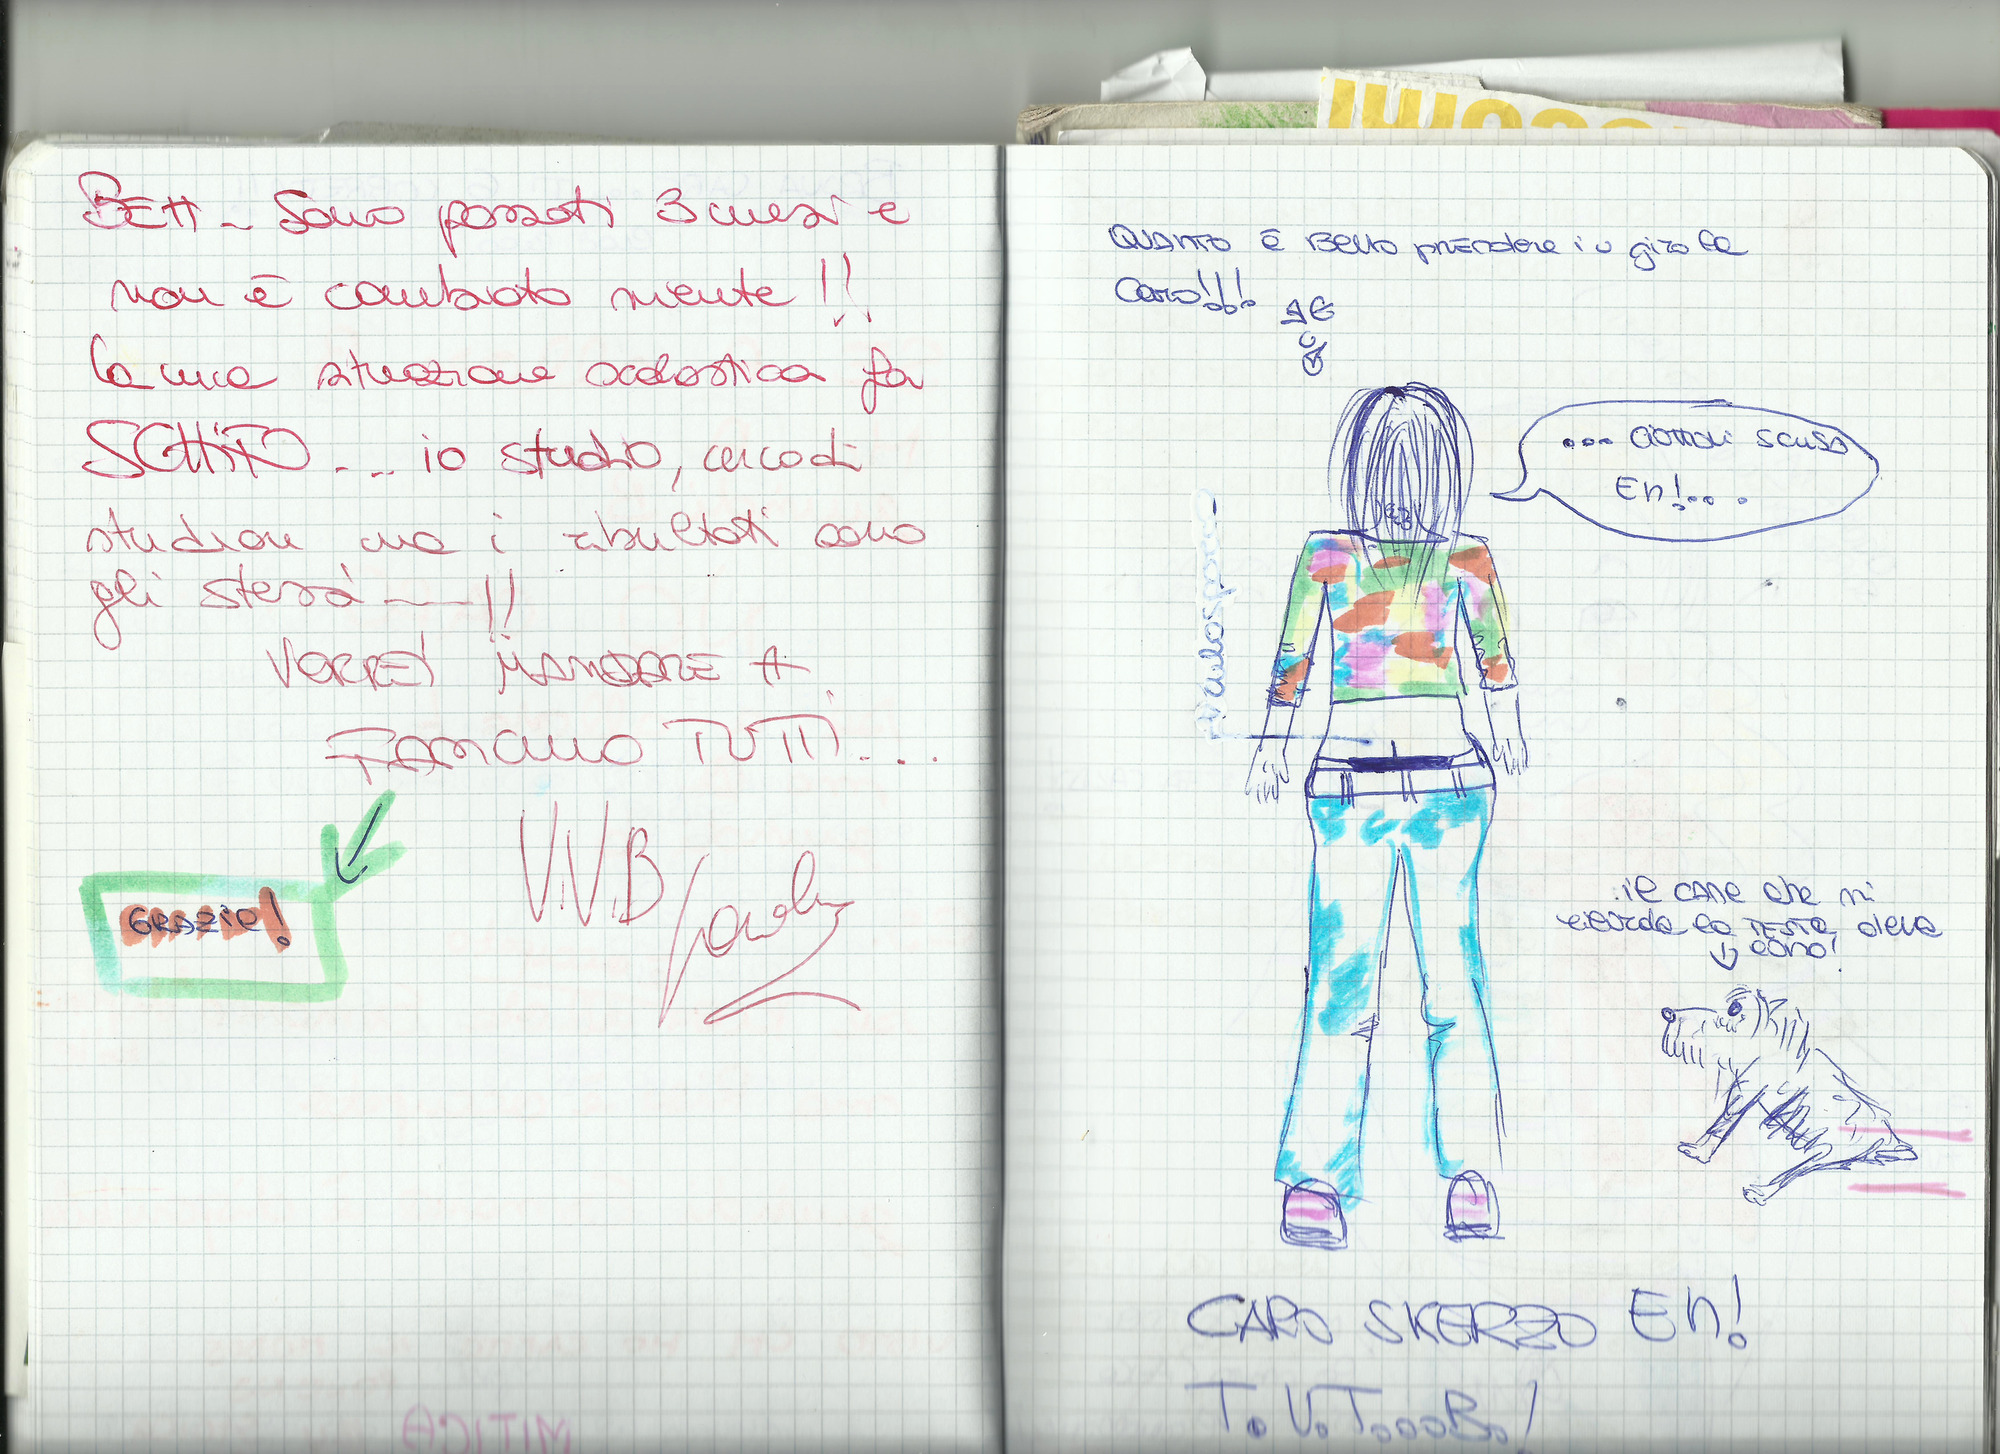 BETT - Sono passati 3 mesi e
non è cambiato niente!!
la mia situazione scolastica fa
SCHIFO... io studio, cerco di
studiare ma i risultati sono
gli stessi ——!!
VORREI MANDARE A
FANCULO TUTTI...
GRAZIE!
V.V.B
QUANTO È Bello prendere in giro la
Caro!!!
... scusa
EH!...
il CANE che mi
ricorda la TESTA della
Caro!
CARO SKERZO EH!
T.V.T...B.!
MITICA